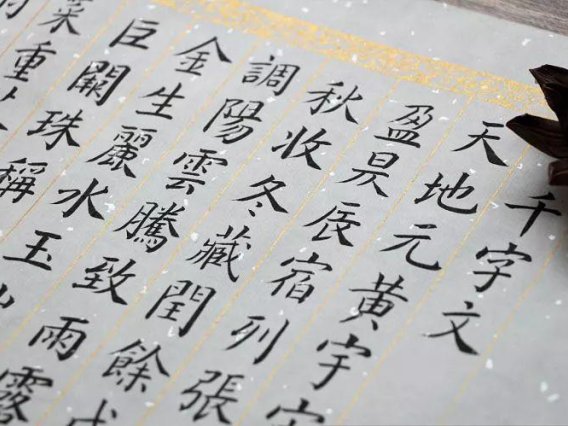 千字文
天地元黃宇
盈昃辰宿列張
秋收冬藏閏餘
調陽雲騰致雨露
金生麗水玉
巨闕珠稱
菜重